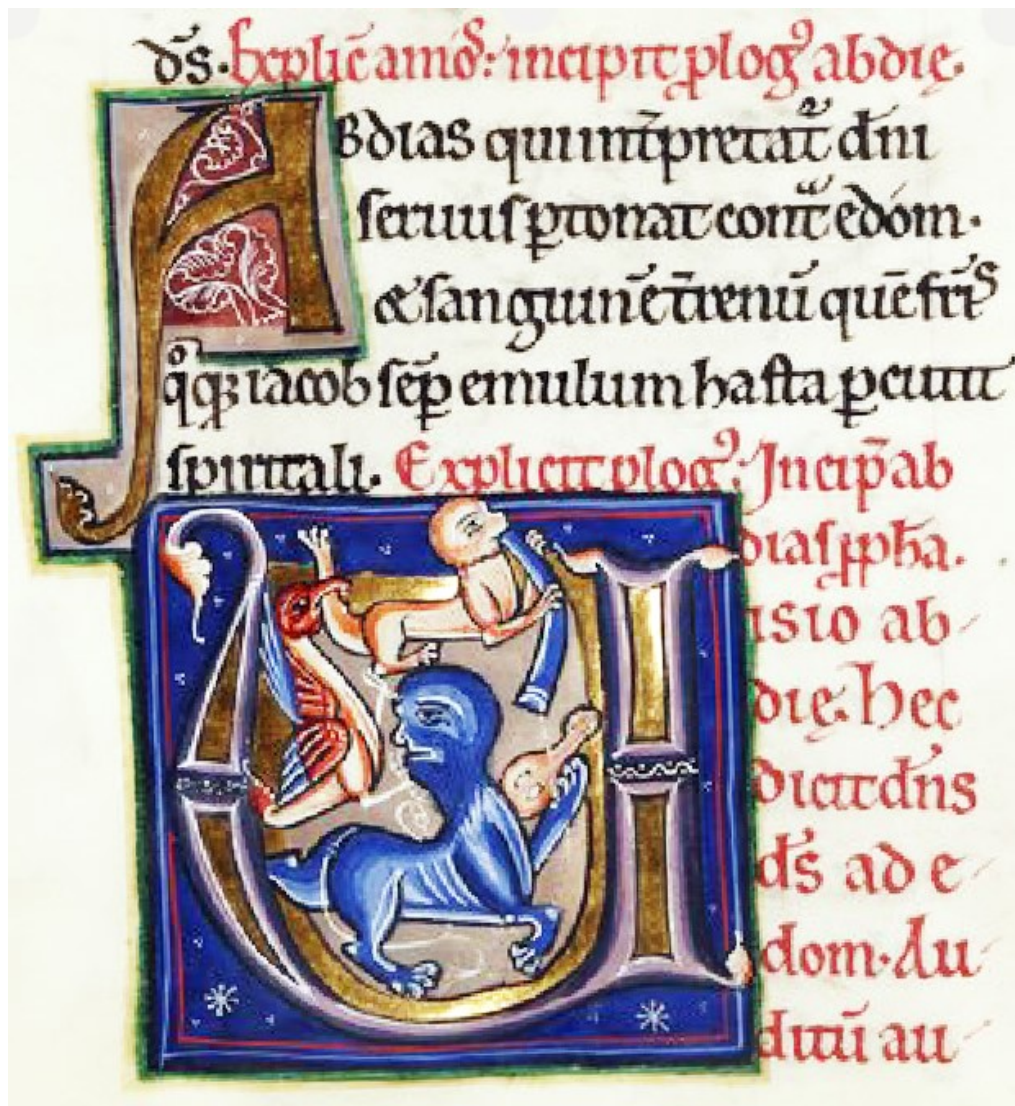 ds̄. Explic̄ amos̄: incipit ꝓlog⁹ abdię.
Abdias qui int̄pretat᷑ dn̄i
seruus ꝑtonat cont᷑ edóm.
& sanguin̄e t̄renū quē fr̄is
q̊q; iacob sēꝑ emulum hasta ꝑcutit
spiritali. Explicit ꝓlog⁹: Incip̄ ab
dias ꝓph̄a.
Uisio ab-
dię. Hec
dicit dn̄s
ds̄ ad e-
dom. Au-
ditū au-